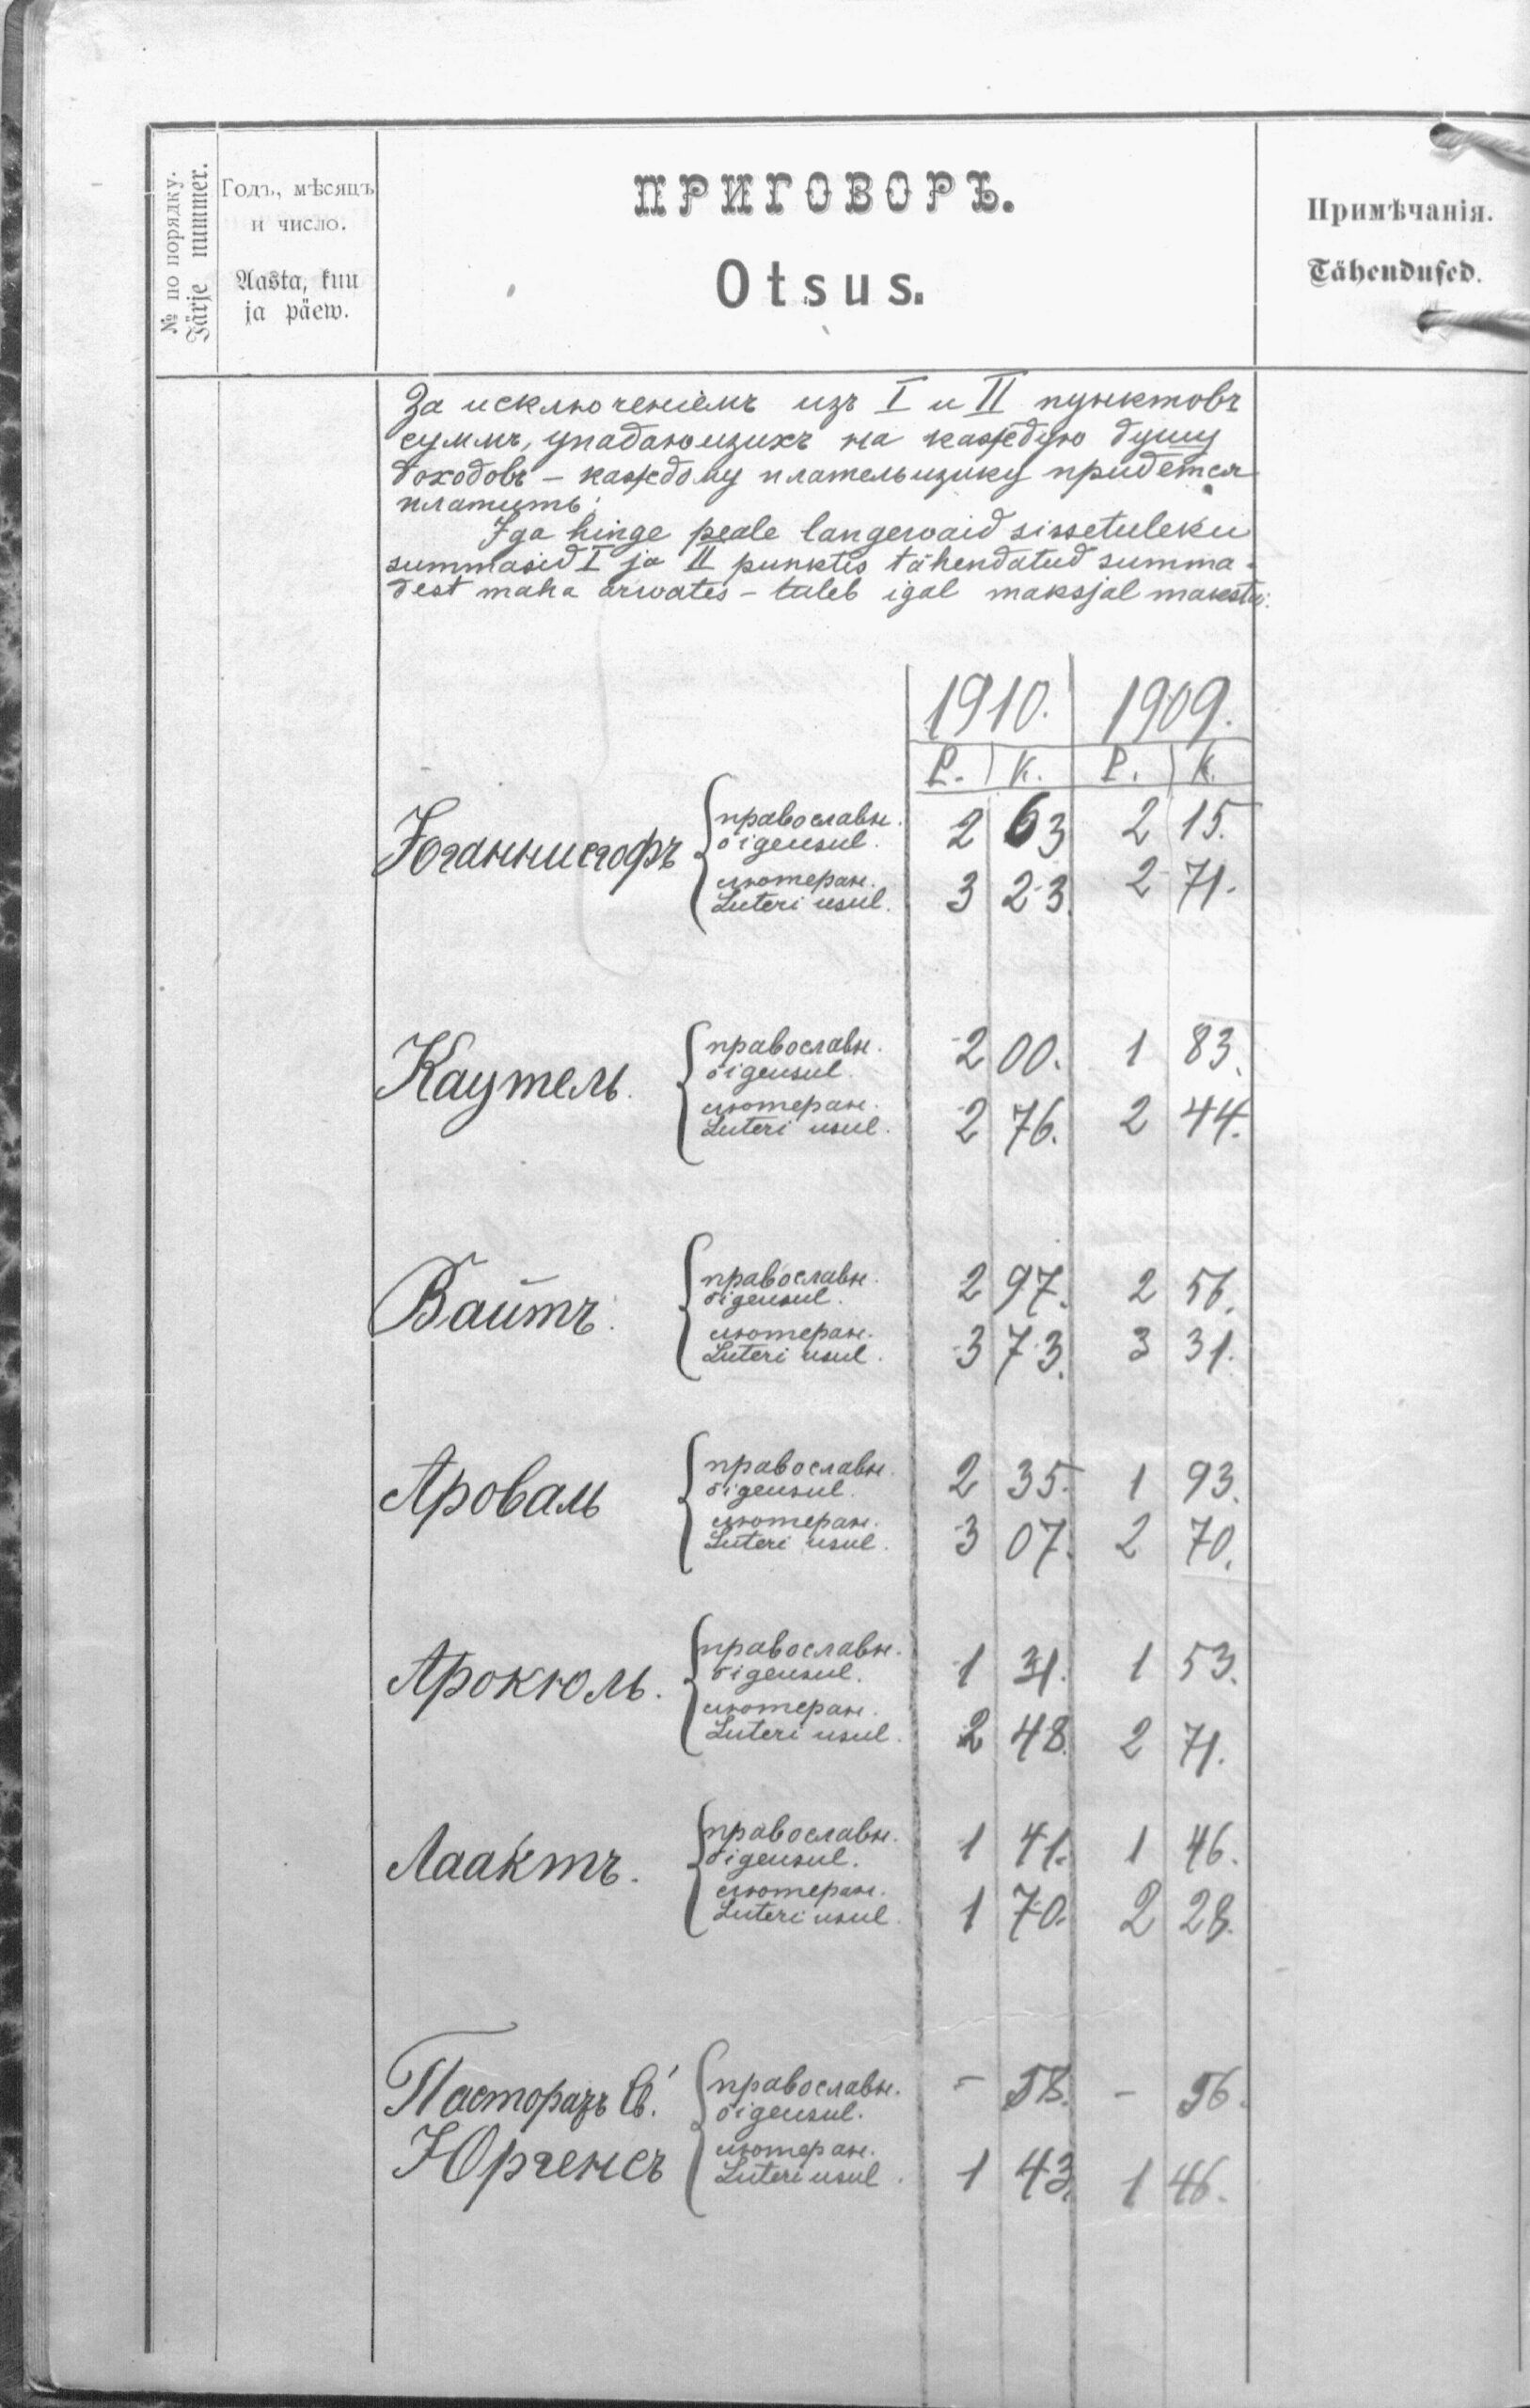 № по порядку.
Järje nummer.
Годъ, мѣсяцъ
и число.
Aasta, kuu
ja päew.
ПРИГОВОРЪ.
Otsus.
Примѣчанія.
Tähendused.
За исключеніемъ изъ I и II пунктовъ
суммъ, упадающихъ на каждую душу
доходовъ – каждому плательщику придется
платить:
Iga hinge peale langewaid sissetuleku
summasid I ja II punktis tähendatud summa-
dest maha arwates – tuleb igal maksjal maksta:
1910. 1909.
Р. К. Р. К.
православн. 2 63 2 15.
õigeusul.
Юганнисгофъ
лютеран. 3 23. 2 71.
Luteri usul.
православн. 2 00. 1 83.
õigeusul.
Каутель.
лютеран. 2 76. 2 44.
Luteri usul.
православн. 2 97. 2 56.
õigeusul.
Вайтъ.
лютеран. 3 73. 3 31.
Luteri usul.
православн. 2 35. 1 93.
õigeusul.
Ароваль
лютеран. 3 07. 2 70.
Luteri usul.
православн. 1 31. 1 53.
õigeusul.
Арокюль.
лютеран. 2 48. 2 71.
Luteri usul.
православн. 1 41. 1 46.
õigeusul.
Лаактъ.
лютеран. 1 70. 2 28.
Luteri usul.
православн. – 58. – 56.
Пасторатъ Св. õigeusul.
лютеран.
Юргенсъ Luteri usul. 1 43. 1 46.